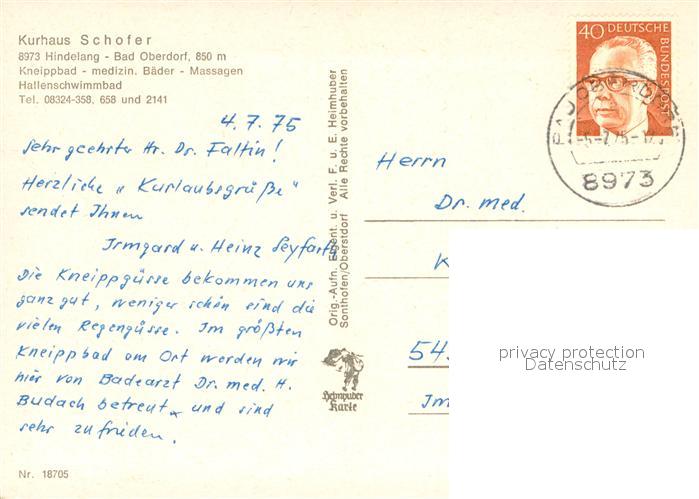 Kurhaus Schofer
8973 Hindelang - Bad Oberdorf, 850 m
Kneippbad - medizin. Bäder - Massagen
Hallenschwimmbad
Tel. 08324-358, 658 und 2141
4.7.75
Sehr geehrter Hr. Dr. Faltin!
Herzliche "Kurlaubsgrüße"
sendet Ihnen
Irmgard u. Heinz Seyfarth
Die Kneippgüsse bekommen uns
ganz gut, weniger schön sind die
vielen Regengüsse. Im größten
Kneippbad am Ort werden wir
hier von Badearzt Dr. med. H.
Budach betreut und sind
sehr zufrieden.
Nr. 18705
Orig.-Aufn. Eigent. u. Verl. F. u. E. Heimhuber
Sonthofen/Oberstdorf Alle Rechte vorbehalten
Heimhuber
Karte
40 DEUTSCHE
BUNDESPOST
BAD OBERDORF
-5.-7.75-
8973
Herrn
Dr. med.
K
54
Im
privacy protection
Datenschutz